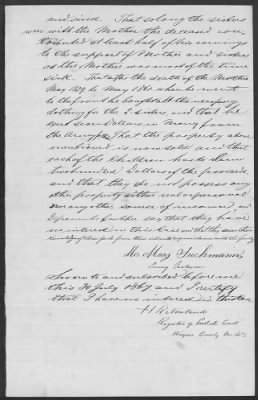 and since. That so long the sisters
were with the Mother the deceased con-
tributed at least half of his earnings
to the support of the Mother and sisters
as the Mother was most of the time
sick. That after the death of the Mother
May 1859 to May 1861 when he went
to the front he bought all the necessary
clothing for the 2 sisters, and that he
sent some dollars in Money from
the Army. That the property above
mentioned is now sold and that
each of the Children has
two hundred Dollars of the proceeds
and that they do not possess any
other property either real or personal
nor any other source of income, and
Deponents further say that they have
no interest in this case and that they
knowledge of
Mary
Sworn to and subscribed before me
this 30 July 1867 and I certify
that I have no interest in this case
H Rowland
Register of Probate Court
Wayne County Mich.